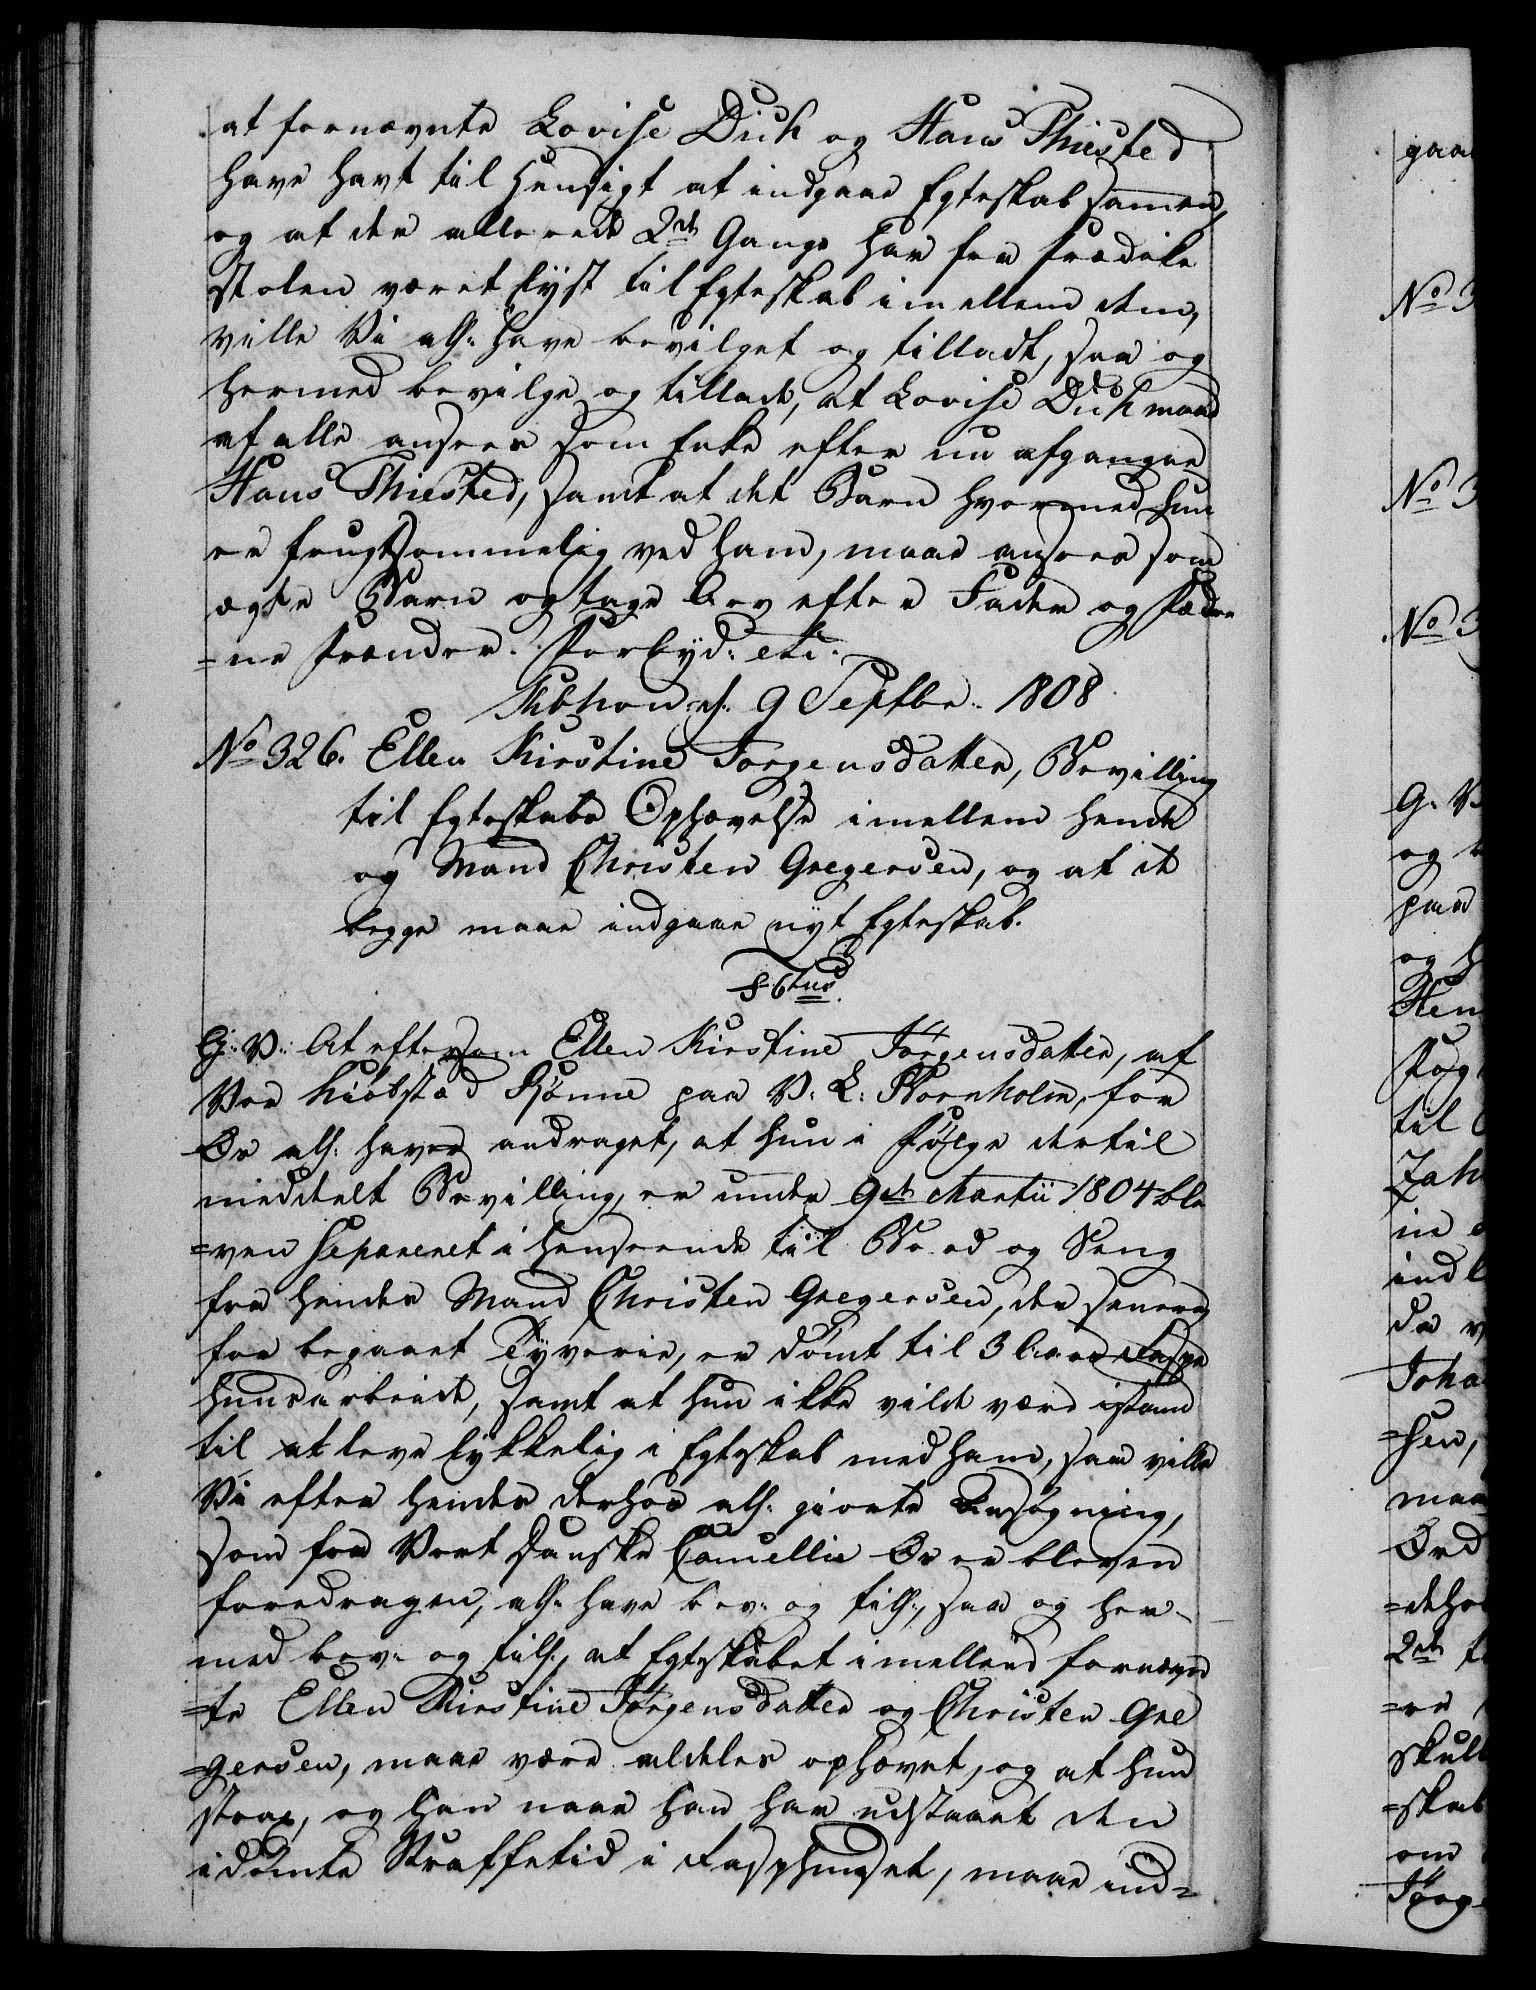 at fornævnte Lovise Dich og Hans Thiested
have havt til Hensigt at indgaae Egteskab sammen,
og at der allerede 2de Gange har fra Prædike
stolen været lyst til Egteskab imellem dem,
ville Vi allr: have bevilget og tilladt, saa og
hermed bevilge og tillade, at Lovise Dich maae
af alle ansees som Enke efter nu afgangne
Hans Thiested, samt at det Barn hvormed hun
er frugtsommelig ved ham, maae ansees som
ægte Barn og tage Arv efter Fader og Fædre
=ne Frænder. Forbyd: etc.
Kbhavn d. 9 Septbr. 1808
No 326. Ellen Kirstine Jørgensdatter, Bevilling
til Egteskabs Ophævelse imellem hende
og Mand Christen Gregersen, og at de
begge maae indgaae nyt Egteskab.
F 6tus.
G: V: At eftersom Ellen Kirstine Jørgensdatter, af
Vor Kiøbstæd Rønne paa V: L: Bornholm, for
Os allr: haver andraget, at hun i Følge dertil
meddelt Bevilling, er under 9de Martii 1804 ble
=ven separeret i Henseende til Bord og Seng
fra hendes Mand Christen Gregersen, der senere
for begaaet Tyverie, er dømt til 3 Aars Rasp
huusarbeide, samt at hun ikke vilde være istand
til at leve lykkelig i Egteskab med ham, saa ville
Vi efter hendes derhos allr: giorte Ansøgning,
som for Vort Danske Cancellie Os er bleven
foredragen, allr: have bev: og till:, saa og her-
med bev: og till:, at Egteskabet imellem fornævn
=te Ellen Kirstine Jørgensdatter og Christen Gre
=gersen, maae være aldeles ophævet, og at hun
strax, og han naar han har udstaaet den
idømte Straffetid i Rasphuuset, maae ind=
gaa
No 3
No 3
No 3
G: V
og
paa
og H
Hen
Føg
til
Zah
in
indl
da
Joha
=sen,
maa
Ord
=deho
2de
=re
skull
=skab
om
Jørg